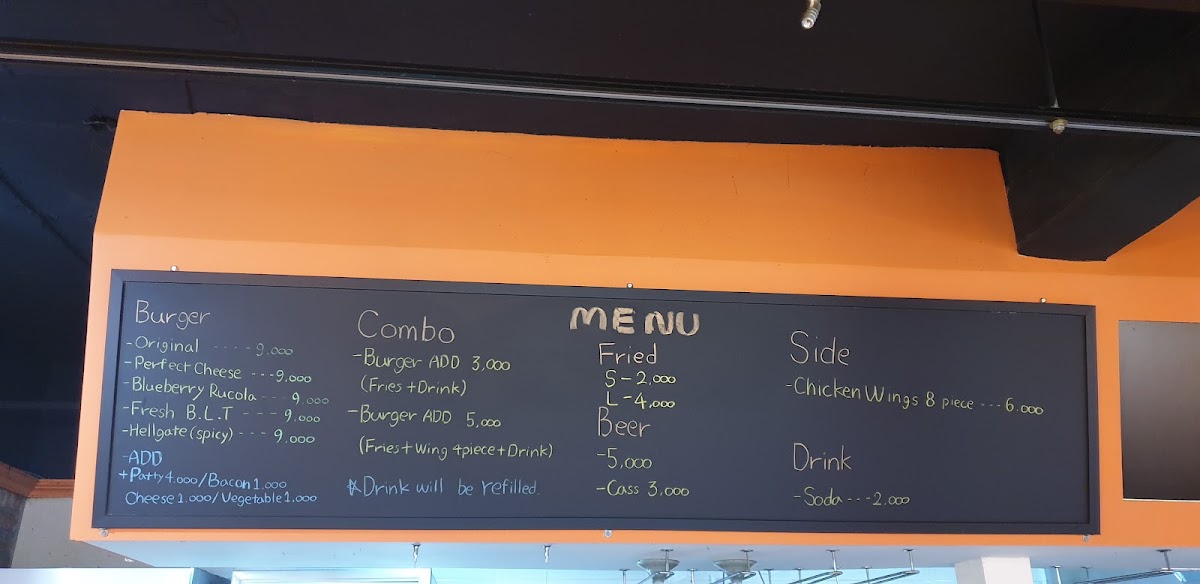 MENU
Burger
-Original ---- 9.000
-Perfect Cheese ---9.000
-Blueberry Rucola --- 9.000
-Fresh B.L.T --- 9.000
-Hellgate (spicy) --- 9.000
-ADD
+Patty 4.000/Bacon 1.000
Cheese 1.000/Vegetable 1,000
Combo
-Burger ADD 3,000
(Fries+Drink)
-Burger ADD 5,000
(Fries+Wing 4piece+Drink)
☆Drink will be refilled.
Fried
S-2,000
L-4,000
Beer
-5,000
-Cass 3,000
Side
-Chicken Wings 8 piece --- 6.000
Drink
-Soda---2,000